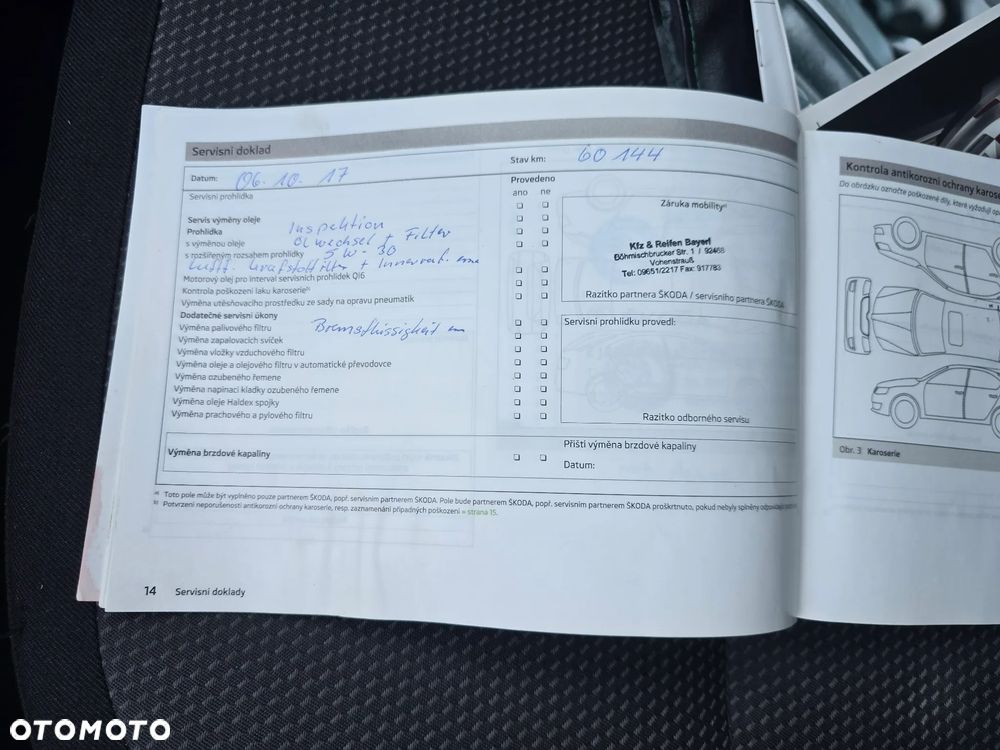 Servisní doklad
Datum: 06. 10. 17
Stav km: 60 144
Servisní prohlídka
Provedeno
ano ne
Servis výměny oleje
Prohlídka
Inspektion
s výměnou oleje
Öl wechsel + Filter
s rozšířeným rozsahem prohlídky
5W-30
Luftf. Krafstoffilter + Innenraf. ern
Motorový olej pro interval servisních prohlídek QI6
Kontrola poškození laku karoserieᵇ⁾
Výměna utěsňovacího prostředku ze sady na opravu pneumatik
Dodatečné servisní úkony
Výměna palivového filtru
Bremsflüssigkeit ern
Výměna zapalovacích svíček
Výměna vložky vzduchového filtru
Výměna oleje a olejového filtru v automatické převodovce
Výměna ozubeného řemene
Výměna napínací kladky ozubeného řemene
Výměna oleje Haldex spojky
Výměna prachového a pylového filtru
Záruka mobilityᵃ⁾
Kfz & Reifen Bayerl
Böhmischbrucker Str. 1 / 92468
Vohenstrauß
Tel: 09651/2217 Fax: 917783
Razítko partnera ŠKODA / servisního partnera ŠKODA
Servisní prohlídku provedl:
Razítko odborného servisu
Výměna brzdové kapaliny
Příští výměna brzdové kapaliny
Datum:
ᵃ⁾ Toto pole může být vyplněno pouze partnerem ŠKODA, popř. servisním partnerem ŠKODA. Pole bude partnerem ŠKODA, popř. servisním partnerem ŠKODA proškrtnuto, pokud nebyly splněny
ᵇ⁾ Potvrzení neporušenosti antikorozní ochrany karoserie, resp. zaznamenání případných poškození » strana 15.
14 Servisní doklady
Kontrola antikorozní ochrany karose
Do obrázku označte poškozené díly, které vyžadují
Obr. 3 Karoserie
OTOMOTO